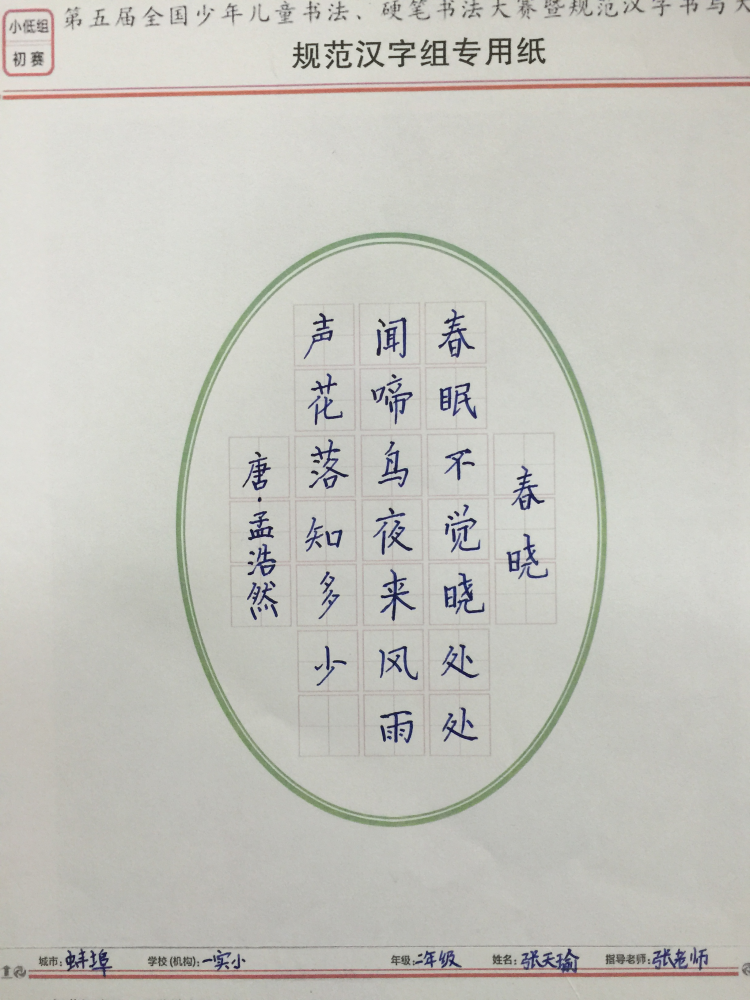 小低组
初赛
第五届全国少年儿童书法、硬笔书法大赛暨规范汉字书写大
规范汉字组专用纸
春晓
春眠不觉晓处处
闻啼鸟夜来风雨
声花落知多少
唐·孟浩然
城市：蚌埠 学校(机构)：一实小 年级：二年级 姓名：张天瑜 指导老师：张老师